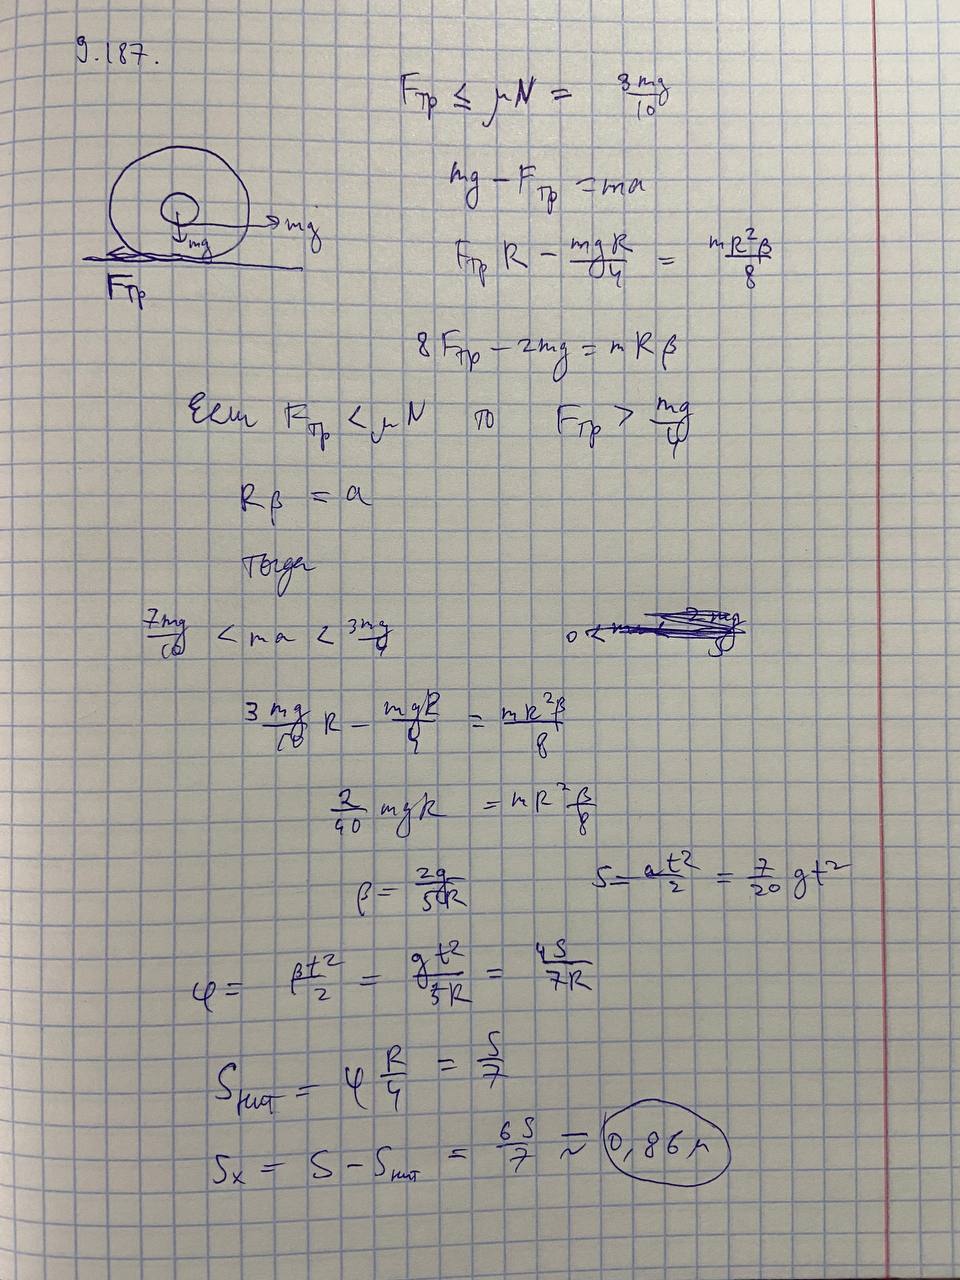 9.187.
Fтр ≤ μN = 3mg/10
mg − Fтр = ma
mg
mg
Fтр
Fтр R − mgR/4 = mR²β/8
8 Fтр − 2mg = mRβ
Если Fтр < μN то Fтр > mg/4
Rβ = a
Тогда
7mg/10 < ma < 3mg/4
0 <
3mg/10 R − mgR/4 = mR²β/8
2/40 mgR = mR² β/8
β = 2g/5R S = at²/2 = 7/20 gt²
φ = βt²/2 = gt²/5R = 4S/7R
Sнит = φ R/4 = S/7
Sx = S − Sнит = 6S/7 ≈ 0,86 м